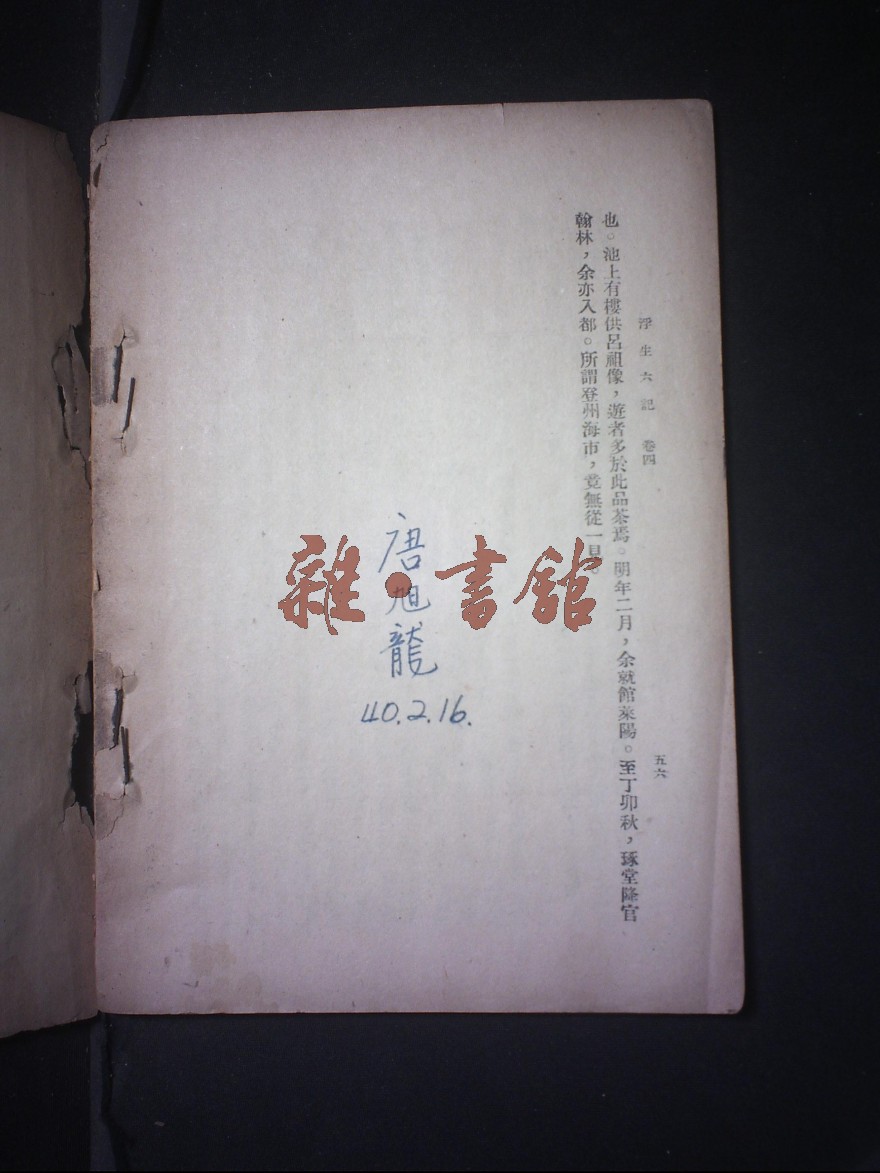 浮生六記 卷四 五六
也。池上有樓供呂祖像，遊者多於此品茶焉。明年二月，余就館萊陽。至丁卯秋，琢堂降官
翰林，余亦入都。所謂登州海市，竟無從一見。
唐旭龍
40.2.16.
雜·書館